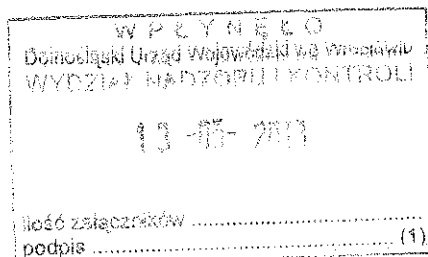 WPŁYNĘŁO
Dolnośląski Urząd Wojewódzki we Wrocławiu
WYDZIAŁ NADZORU I KONTROLI
13 -05-
ilość załączników ........................................
podpis .................................................... (1)